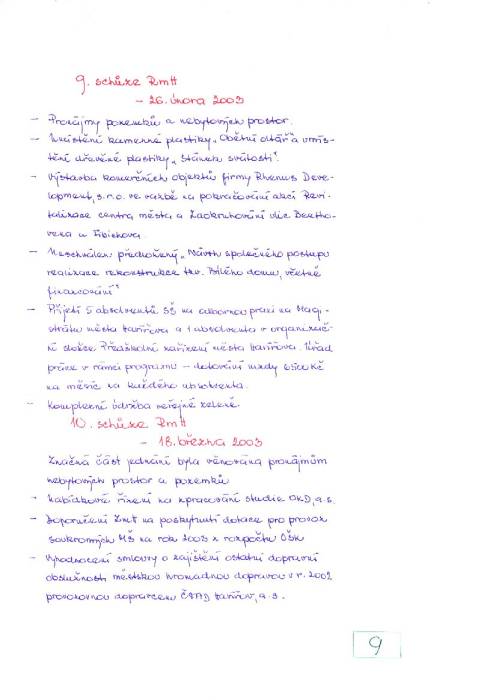 9. schůze RmH
- 26. února 2003
- Pronájmy pozemků a nebytových prostor.
- Umístění kamenné plastiky „Obětní oltář" a umís-
tění dřevěné plastiky „Stánek svátosti".
- Výstavba komerčních objektů firmy Rhenus Deve-
lopment, s.r.o. ve vazbě na pokračování akcí Revi-
talizace centra města a Zaokruhování ulic Beetho-
vena a Fibichova.
- Neschválen předložený „Návrh společného postupu
realizace rekonstrukce tzv. Bílého domu, včetně
financování"
- Přijetí 5 absolventů SŠ na odbornou praxi na Magi-
strátu města Havířova a 1 absolventa v organizač-
ní složce Předškolní zařízení města Havířova. Úřad
práce v rámci programu - dotování mzdy
na měsíc na každého absolventa.
- Komplexní údržba veřejné zeleně.
10. schůze RmH
- 18. března 2003
Značná část jednání byla věnována pronájmům
nebytových prostor a pozemků
- Nabídkové řízení na zpracování studie OKD, a.s.
- Doporučení ZmH na poskytnutí dotace pro provoz
soukromých MŠ na rok 2003 z rozpočtu
- Vyhodnocení smlouvy o zajištění ostatní dopravní
obslužnosti městskou hromadnou dopravou v r. 2002
provozovnou dopravcem ČSAD Havířov, a.s.
9